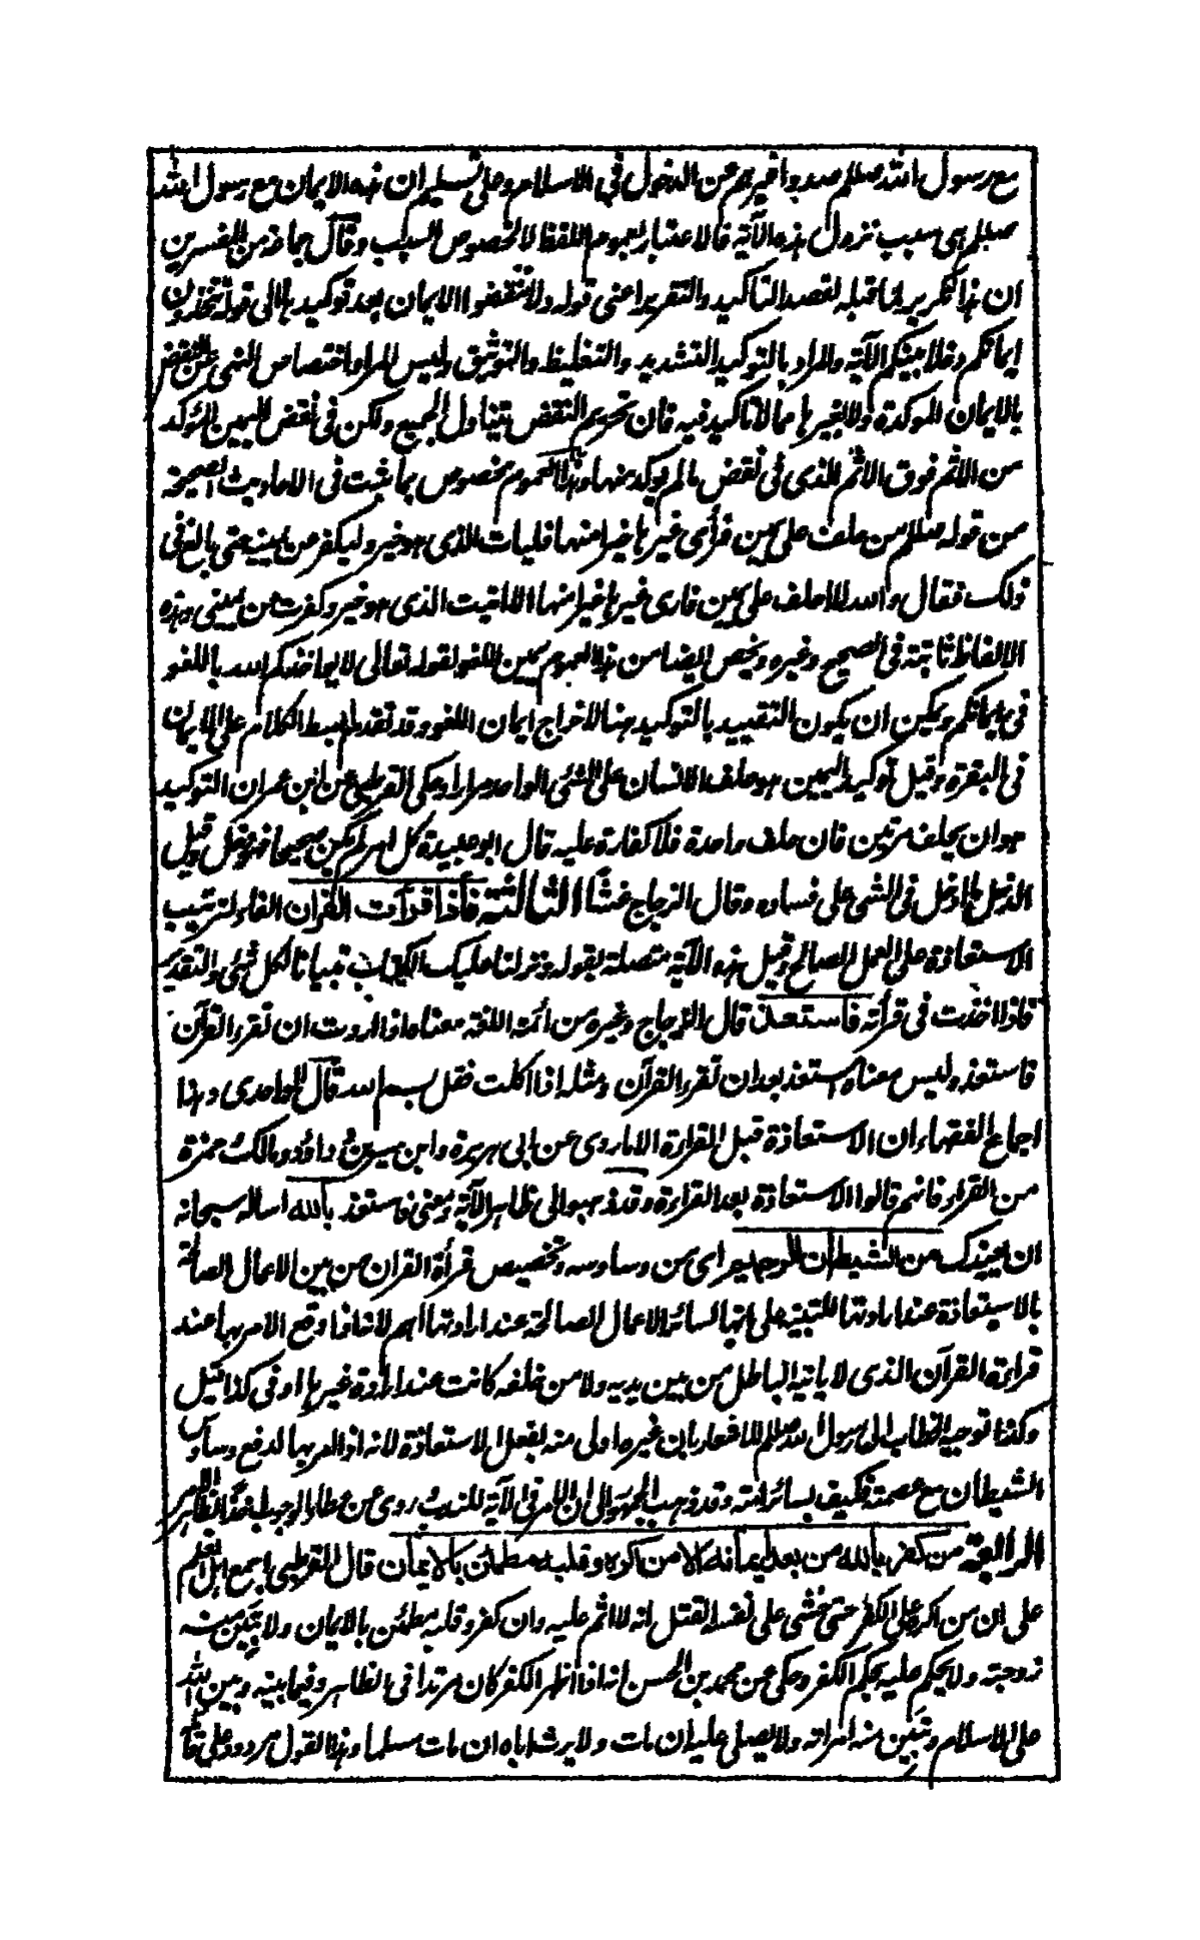 مع رسول الله صلعم صدوا غيرهم عن الدخول في الاسلام وعلى تسليم ان هذه الايمان مع رسول الله
صلعم هي سبب نزول هذه الآية فالاعتبار لعموم اللفظ لا لخصوص السبب وقال جماعة من المفسرين
ان هذا تكرير لما قبله لقصد التاكيد والتقرير اعني قوله ولا تنقضوا الايمان بعد توكيدها الى قوله تتخذون
ايمانكم دخلا بينكم الآية والمراد بالتوكيد التشديد والتغليظ والتوثيق وليس المراد اختصاص النهي عن النقض
بالايمان الموكدة ولا بغيرها مما لا تاكيد فيه فان تحريم النقض يتناول الجميع ولكن في نقض اليمين المؤكد
من الاثم فوق الاثم الذي في نقض مالم يوكد منها وهذا العموم مخصوص بما ثبت في الاحاديث الصحيحة
من قوله صلعم من حلف على يمين فرأى غيرها خيرا منها فليات الذي هو خير وليكفر عن يمينه حتى بالغ في
ذلك فقال والله لا احلف على يمين فارى غيرها خيرا منها الا اتيت الذي هو خير وكفرت عن يميني وهذه
الالفاظ ثابتة في الصحيح وغيره ويخص ايضا من هذا العموم يمين اللغو لقوله تعالى لا يؤاخذكم الله باللغو
في ايمانكم ويمكن ان يكون التقييد بالتوكيد هنا لاخراج ايمان اللغو وقد تقدم بسط الكلام على الايمان
في البقرة وقيل توكيد اليمين هو حلف الانسان على الشئ الواحد مرارا وحكى القرطبي عن ابن عمر ان التوكيد
هو ان يحلف مرتين فان حلف واحدة فلا كفارة عليه قال ابو عبيدة كل امر لم يكن صحيحا فهو دخل وقيل
الدخل ما ادخل في الشئ على فساده وقال الزجاج غشًا الثالثة فاذا قرأت القرآن الفاء لترتيب
الاستعاذة على العمل الصالح وقيل هذه الآية متصلة بقوله ونزلنا عليك الكتاب تبيانا لكل شئ والتقدير
فاذا اخذت في قرأته فاستعذ قال الزجاج وغيره من ائمة اللغة معناه اذا اردت ان تقرء القرآن
فاستعذ وليس معناه استعذ بعد ان تقرء القرآن ومثله اذا اكلت فقل بسم الله قال الواحدي وهذا
اجماع الفقهاء ان الاستعاذة قبل القراءة الا ما روى عن ابي هريرة وابن سيرين وداؤد ومالك وحمزة
من القراء فانهم قالوا الاستعاذة بعد القراءة وقد ذهبوا الى ظاهر الآية ومعنى فاستعذ بالله اساله سبحانه
ان يعيذك من الشيطان الرجيم اي من وساوسه وتخصيص قرأة القرآن من بين الاعمال الصالحة
بالاستعاذة عند ارادتها للتنبيه على انها لسائر الاعمال الصالحة عند ارادتها اهم لانه اذا وقع الامر بها عند
قراءة القرآن الذي لا ياتيه الباطل من بين يديه ولا من خلفه كانت عند ارادة غيرها اولى كذا قيل
وكذا توجيه الخطاب الى رسول الله صلعم للاشعار بان غيره اولى منه بفعل الاستعاذة لانه اذا امر بها لدفع وساوس
الشيطان مع عصمته فكيف بسائر امته وقد ذهب الجمهور الى ان الامر في الآية للندب روى عن عطاء الوجوب اخذا بظاهر الامر
الرابعة من كفر بالله من بعد ايمانه الا من اكره وقلبه مطمئن بالايمان قال القرطبي اجمع اهل العلم
على ان من اكره على الكفر حتى خشى على نفسه القتل انه لا اثم عليه وان كفر وقلبه مطمئن بالايمان ولا تبين منه
زوجته ولا يحكم عليه بحكم الكفر وحكى عن محمد بن الحسن انه اذا اظهر الكفر كان مرتدا في الظاهر وفيما بينه وبين الله
على الاسلام وتبين منه امراته ولا يصلى عليه ان مات ولا يرث اباه ان مات مسلما وهذا القول مردود على